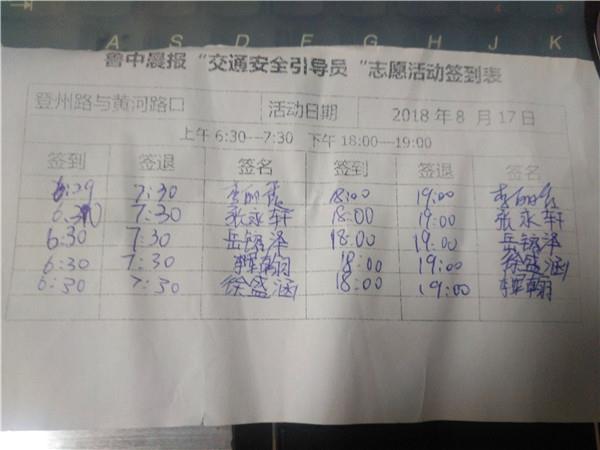 A S D F G H J K
鲁中晨报“交通安全引导员”志愿活动签到表
登州路与黄河路口 活动日期 2018 年 8 月 17 日
上午 6:30—7:30 下午 18:00—19:00
签到 签退 签名 签到 签退 签名
6:29 7:30 18:00 19:00
6:30 7:30 张永轩 18:00 19:00 张永轩
6:30 7:30 18:00 19:00
6:30 7:30 18:00 19:00 徐盛涵
6:30 7:30 徐盛涵 18:00 19:00